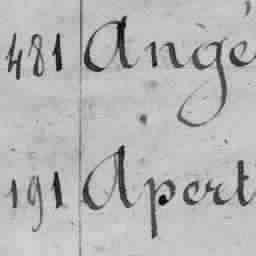 481 Angé
191 Apert